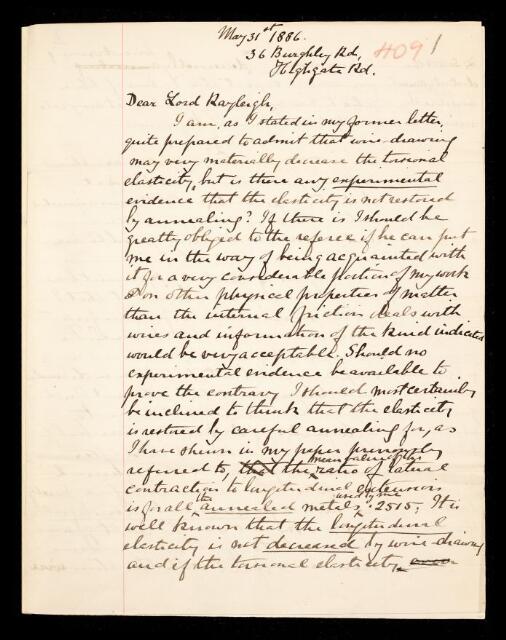 May 31st 1886.
36 Burghley Rd,
Highgate Rd.
409 1
Dear Lord Rayleigh,
I am, as I stated in my former letter,
quite prepared to admit that wire-drawing
may very materially decrease the torsional
elasticity, but is there any experimental
evidence that the elasticity is not restored
by annealing? If there is I should be
greatly obliged to the referee if he can put
me in the way of being acquainted with
it for a very considerable portion of my work
on other physical properties of matter
than the internal friction deals with
wires and information of the kind indicated
would be very acceptable. Should no
experimental evidence be available to
prove the contrary I should most certainly
be inclined to think that the elasticity
is restored by careful annealing for, as
I have shewn in my paper previously
referred to, the mean value of the ratio of lateral
contraction to longitudinal extension
is for all the annealed metals used by me .2515; It is
well known that the longitudinal
elasticity is not decreased by wire-drawing
and if the torsional elasticity